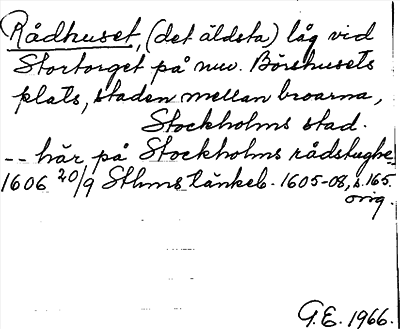 Rådhuset, (det äldsta) låg vid
Stortorget på nuv. Börshusets
plats, staden mellan broarna,
Stockholms stad.
-- här på Stockholms rådstughe
1606 20/9 Sthms tänkeb. 1605-08, s. 165.
orig.
G.E. 1966.